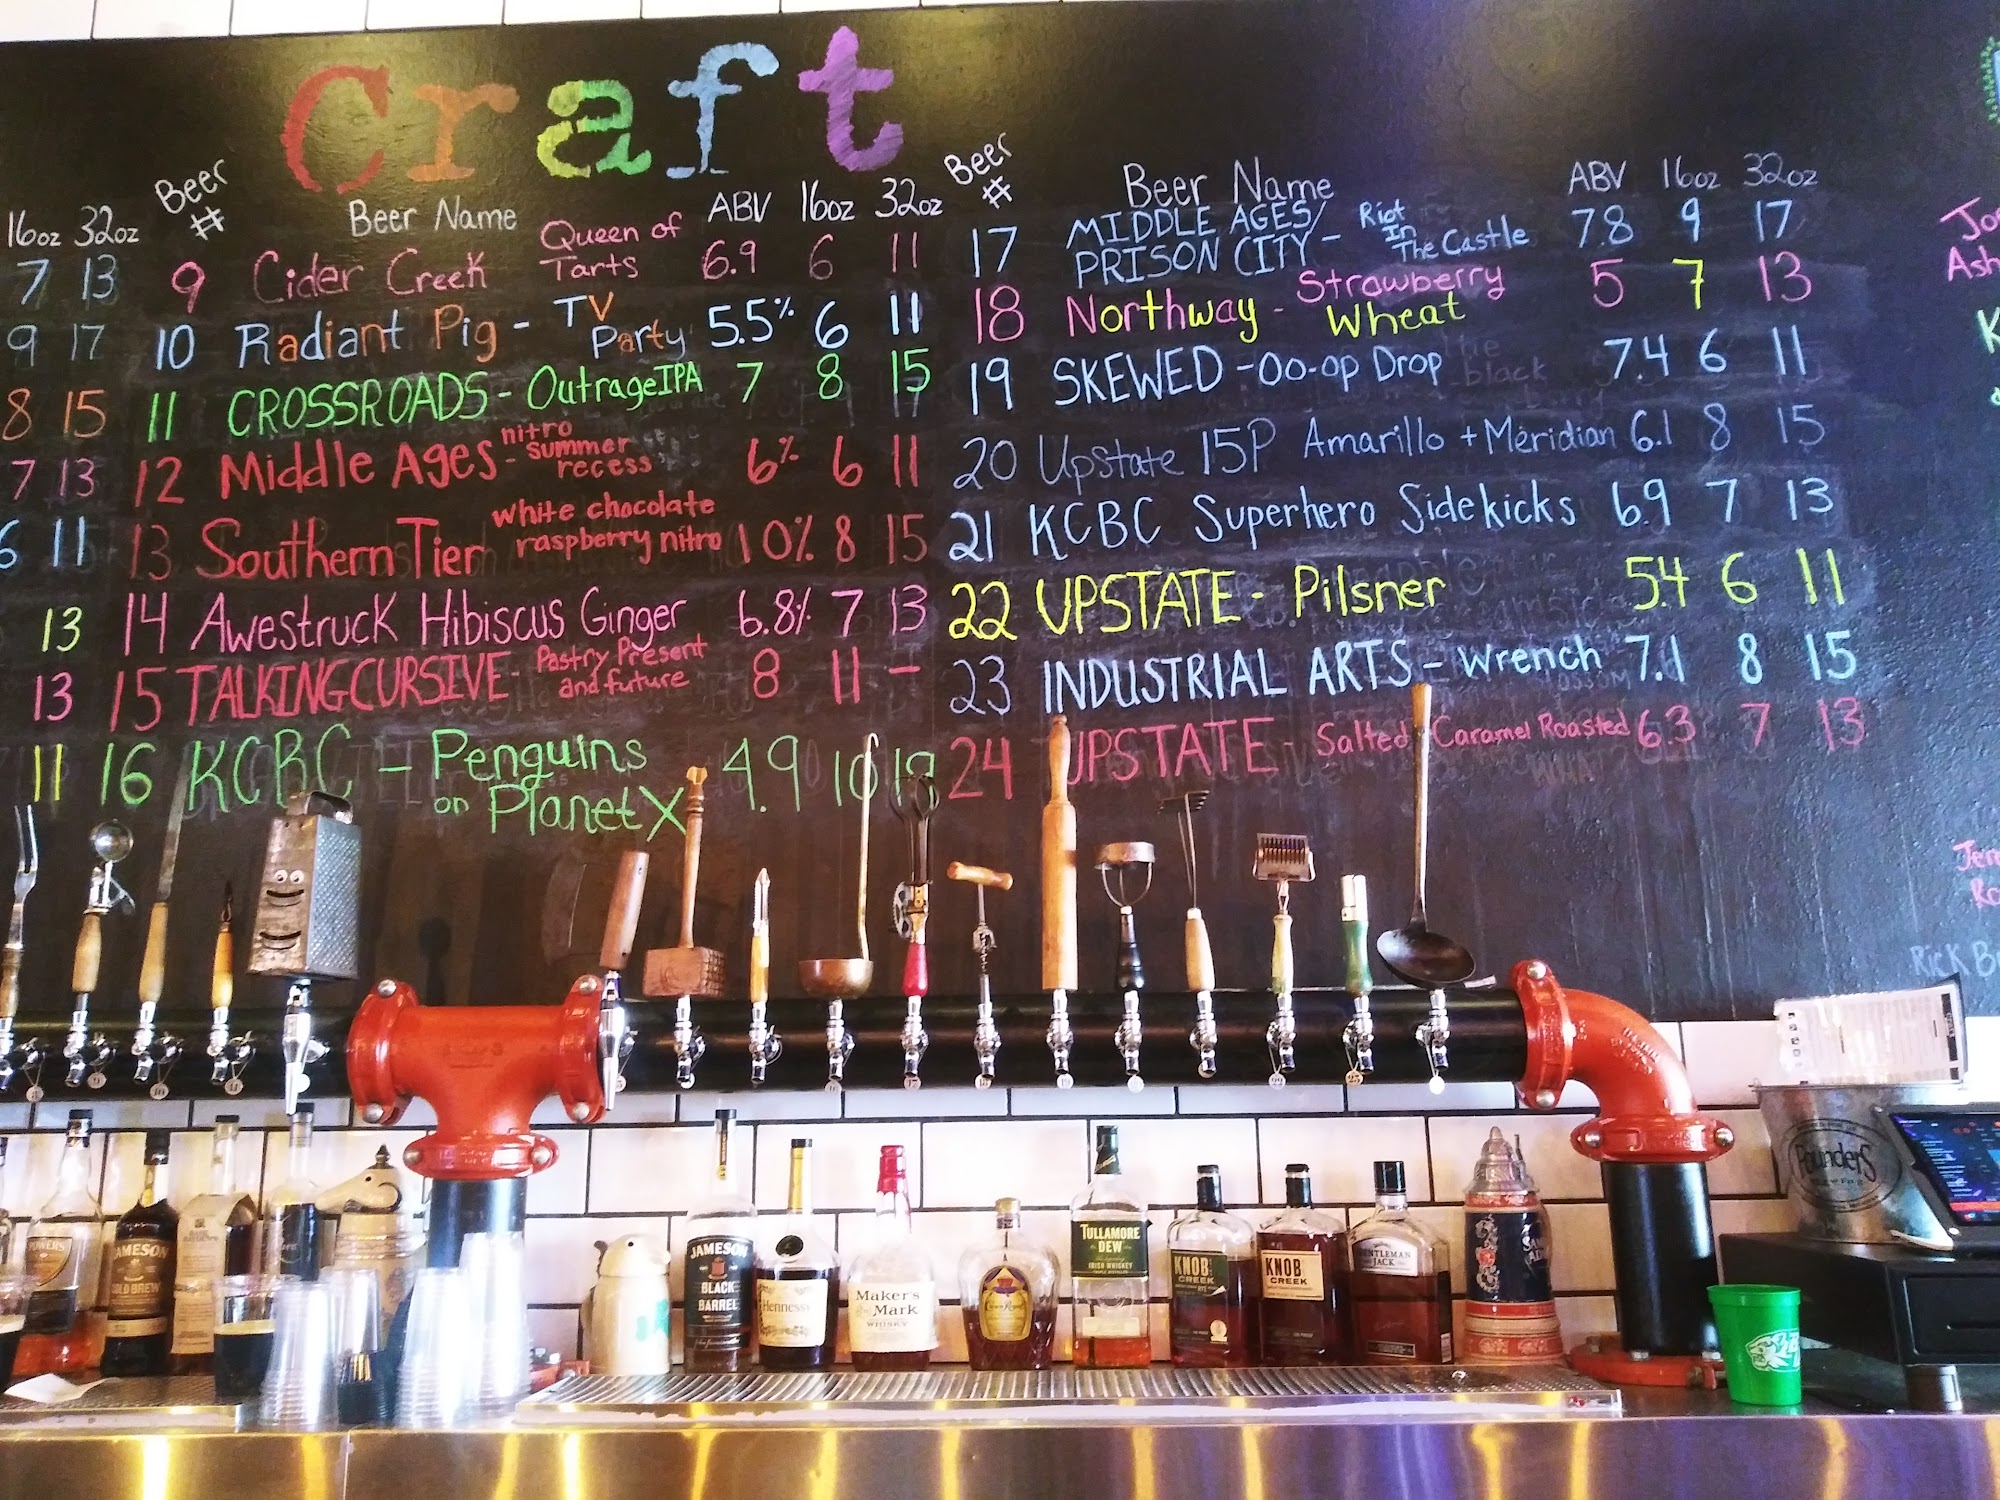 Craft
16oz 32oz
7 13
9 17
8 15
7 13
6 11
13
13
11
Beer # Beer Name ABV 16oz 32oz
9 Cider Creek Queen of Tarts 6.9 6 11
10 Radiant Pig - TV Party 5.5% 6 11
11 CROSSROADS - Outrage IPA 7 8 15
12 Middle Ages - nitro summer recess 6% 6 11
13 Southern Tier white chocolate raspberry nitro 10% 8 15
14 Awestruck Hibiscus Ginger 6.8% 7 13
15 TALKING CURSIVE - Pastry Present and future 8 11 -
16 KCBC - Penguins on Planet X 4.9 10 19
Beer # Beer Name ABV 16oz 32oz
17 MIDDLE AGES/ PRISON CITY - Riot In The Castle 7.8 9 17
18 Northway - Strawberry Wheat 5 7 13
19 SKEWED - Oo-op Drop 7.4 6 11
20 Upstate 15P Amarillo + Meridian 6.1 8 15
21 KCBC Superhero Sidekicks 6.9 7 13
22 UPSTATE - Pilsner 5.4 6 11
23 INDUSTRIAL ARTS - Wrench 7.1 8 15
24 UPSTATE - Salted Caramel Roasted 6.3 7 13
Rick
POWERS
JAMESON
COLD BREW
JAMESON
BLACK
BARREL
Hennessy
Maker's
Mark
WHISKY
Crown Royal
TULLAMORE
DEW
IRISH WHISKEY
KNOB
CREEK
KNOB
CREEK
GENTLEMAN
JACK
Founders